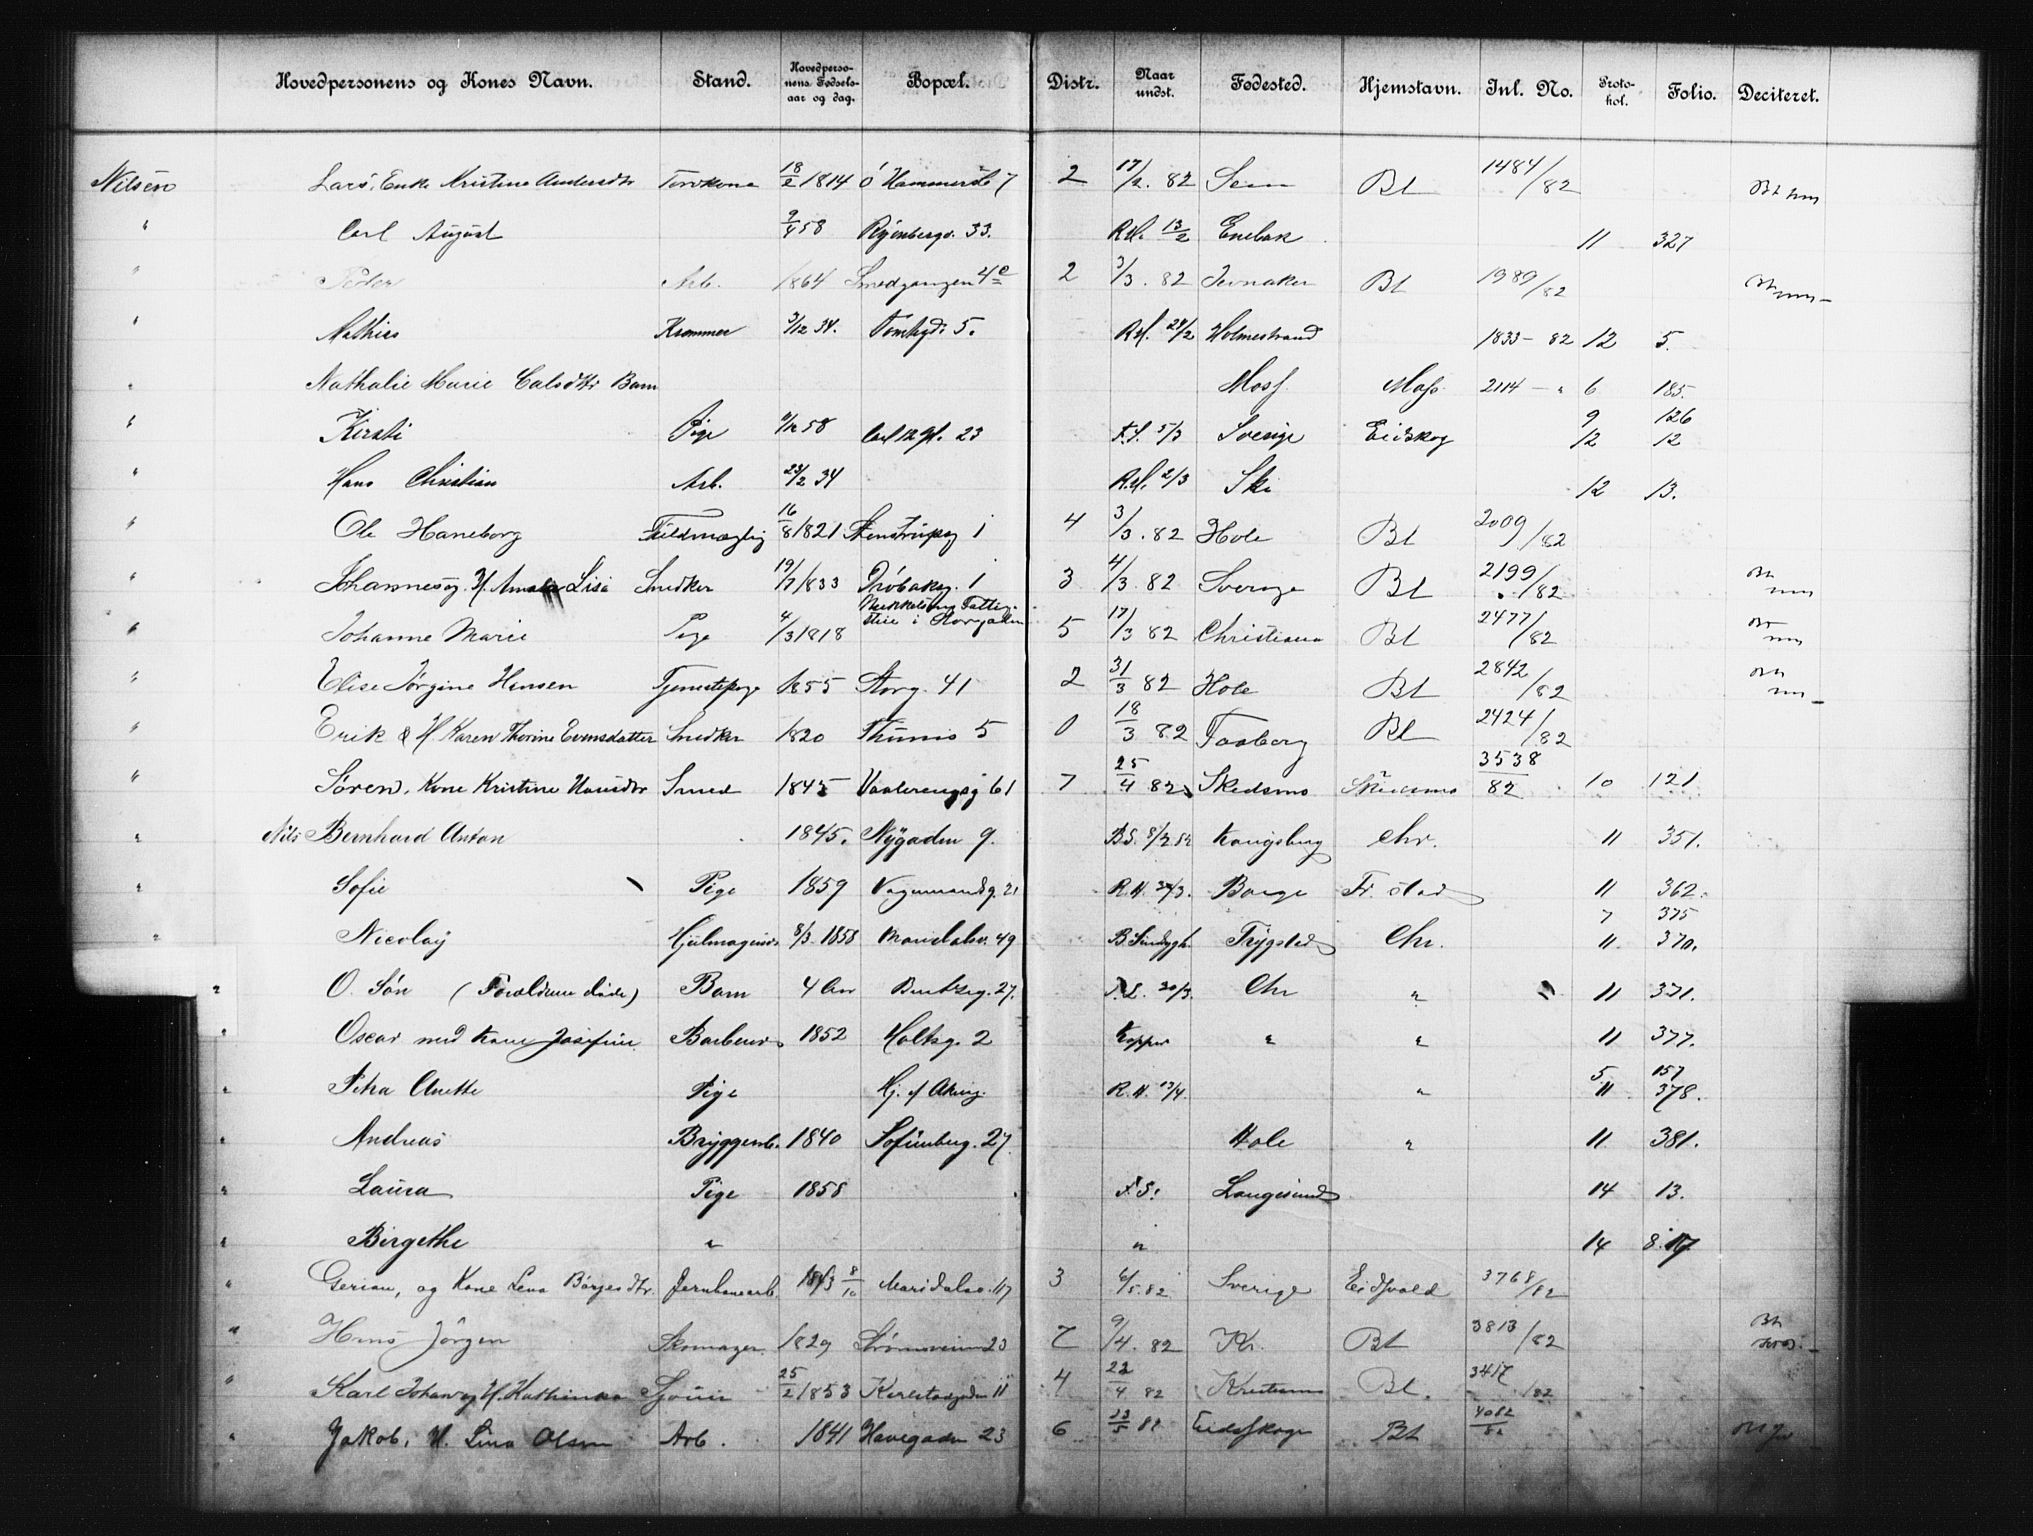 Hovedpersonens og Kones Navn. Stand. Hovedperso- nens Fødsels- aar og dag. Bopæl. Distr. Naar undst. Fødested. Hjemstavn. Inl. No. Proto- kol. Folio. Deciteret.
Nilsen Lars, Enke Kristine Andersdtr Torvkone 18/2 1814 Ö Hammersb 7 2 17/2. 82 Sem Bt 1484/82
" Carl August 9/4 58 Ryenbergv. 33. R.H. 13/2 Enebak 11 327
" Peder Arb. 1864 Smedgangen 4 c 2 3/3. 82 Jevnaker Bt 1989/82
" Mathias Kræmmer 3/12 34. Tomtegd. 5. R.H. 24/2 Holmestrand 1833 - 82 12 5.
" Nathalie Marie Calsdtr Barn Moss. Moss 2114 - " 6 185.
" Kirsti Pige 9/12 58 23 F.S. 5/3 Sverige Eidskog 9 12 126 12
" Hans Christian Arb. 23/2 34 R.H. 2/3 Ski 12 13.
" Ole Haneborg Fuldmægtig 16/8 1821 Stenstrupsg 1 4 3/3. 82 Hole Bt 2009/82
" Johannes og H. Lisa Snedker 19/7 1833 Drøbakg. 1 3 4/3. 82 Sverige Bt 2199/82
" Johanne Marie Pige 4/3 1818 Fattig- i Storgaden 5 17/3 82 Christiania Bt 2477/82
" Elise Jørgine Hansen Tjenestepige 1855 Storg. 41 2 31/3 82 Hole Bt 2842/82
" Erik & H. Karen Thorine Evensdatter Snedker 1820 Thunes 5 0 18/3 82 Faaberg Bt 2424/82
" Søren, Kone Kristine Hansdtr Smed 1845 Vaalerengsg 61 7 25/4 82 Skedsmo Skedsmo 3538/82 10 121
" Nils Bernhard Anton 1845. Nygaden 9. B.S. 8/3 82 Kongsberg Chr. 11 351.
" Sofie Pige 1859 Vognmandsg. 21 R.H. 24/3. Borge Fr. stad 11 362.
" Nicolay Hjulmager 8/3. 1858 Maridalsv. 49 B Sindsygh. Trygstad Chr. 7 11 375 370.
" O. Søn (Forældrene døde) Barn 4 Aar Bentseg. 27. F.S. 20/3. Chr " 11 371.
" Oscar med Kone Josefine Barber 1852 Holtsg. 2 Kopper " " 11 377.
" Petra Anette Pige Hj. af Akersg. R.H. 13/4 " 5 11 157 378.
" Andreas Bryggearb. 1840 Sofienberg. 27. Hole " 11 381.
" Laura Pige 1858 F.S. Langesund 14 13.
" Birgethe " " 14 8. 17
" Gerian, og Kone Lena Børjesdtr. Jernbanearb. 1843 8/10 Maridalsv. 117 3 6/5. 82 Sverige Eidsvold 3768/82
" Hans Jörgen Skomager 1829 Strömsveien 23 7 9/4. 82 Kr. Bt 3813/82
" Karl Johan og H. Kathinka Sjouer 25/2 1853 Karlstadgaden 11 4 22/4 82 Kristiania Bt. 3417/82
" Jakob, H. Lina Olsen Arb. 1841 Havegaden 23 6 23/5 82 Eidsskoge Bt 4082/82